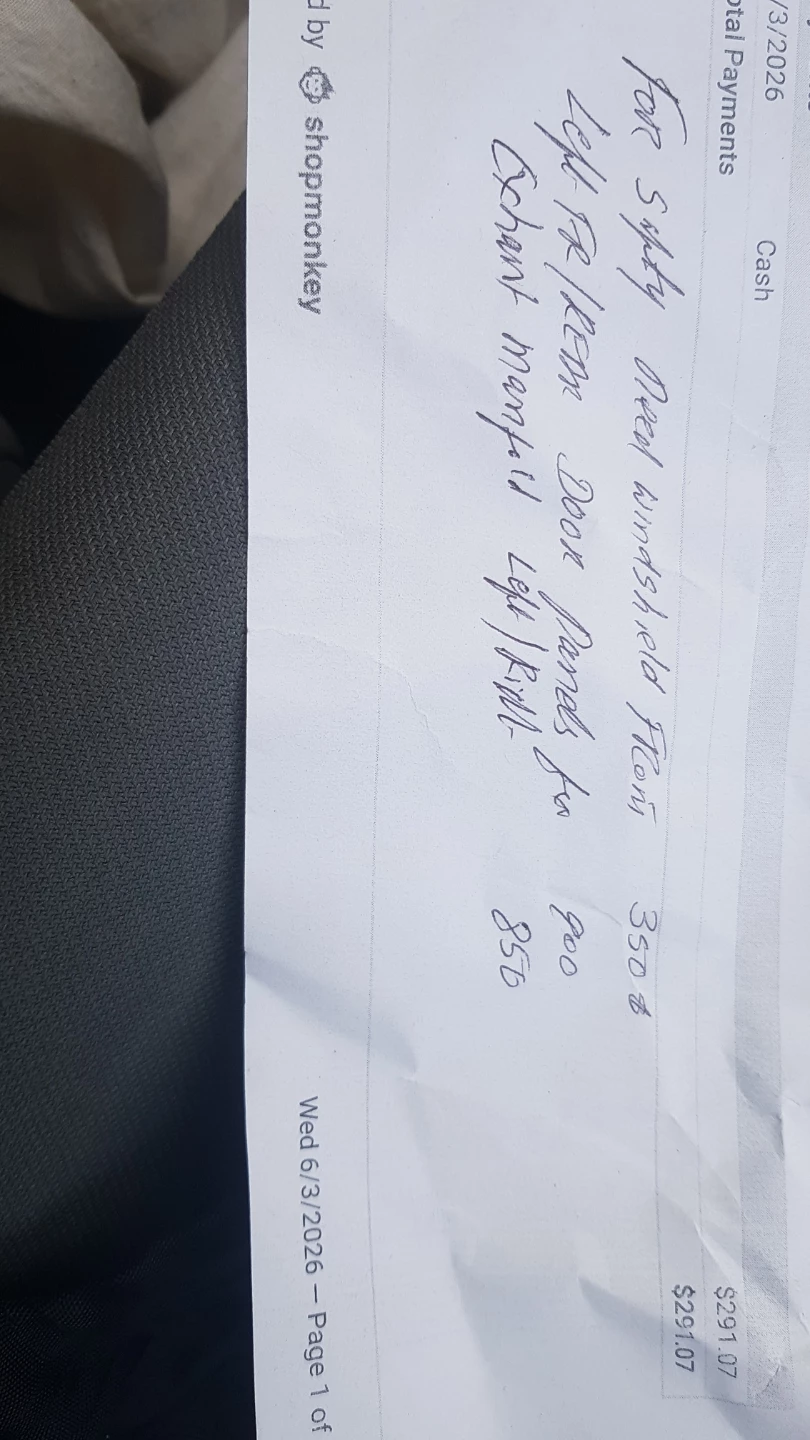 /3/2026 Cash $291.07
otal Payments $291.07
For Safty need windshield Front 350
Left FR/REAR Door Panels for 900
Exhaust manifold Left/Right 850
d by shopmonkey Wed 6/3/2026 – Page 1 of